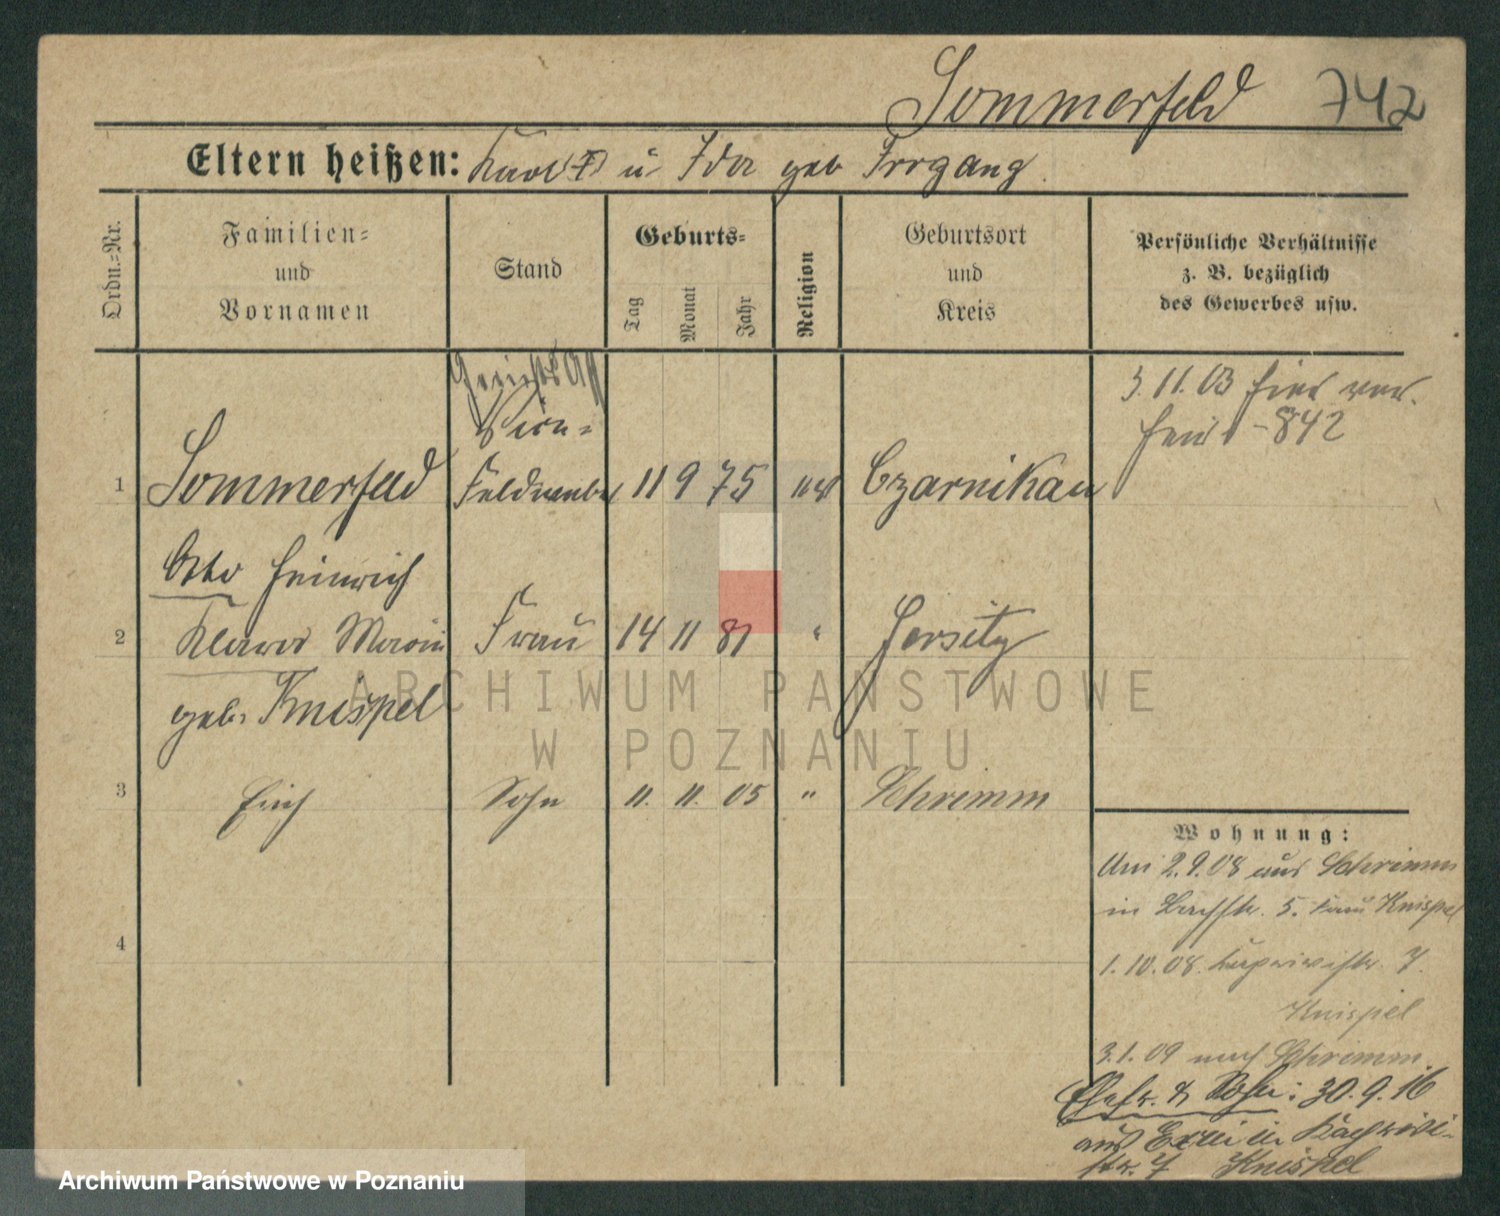 Sommerfeld 742
Eltern heißen: Karl (†) u Ida geb Irrgang.
Ordn.-Nr.
Familien-
und
Vornamen
Stand
Geburts-
Tag
Monat
Jahr
Religion
Geburtsort
und
Kreis
Persönliche Verhältnisse
z. B. bezüglich
des Gewerbes usw.
Gerichts
3. 11. 03
842
1 Sommerfeld 11 9 75 Czarnikau
Otto Heinrich
2 Klara Frau 14 11 81 " Jersitz
geb. Knispel
3 Erich Sohn 11. 11. 05 " Schrimm
4
Wohnung:
Um 2.9.08 aus Schrimm
in Bachstr. 5. Knispel
1. 10. 08. 7.
Knispel
3.1.09 nach Schrimm.
Ehefr. & Sohn: 30.9.16
aus Exin in
str. 7 Knispel
ARCHIWUM PAŃSTWOWE
W POZNANIU
Archiwum Państwowe w Poznaniu